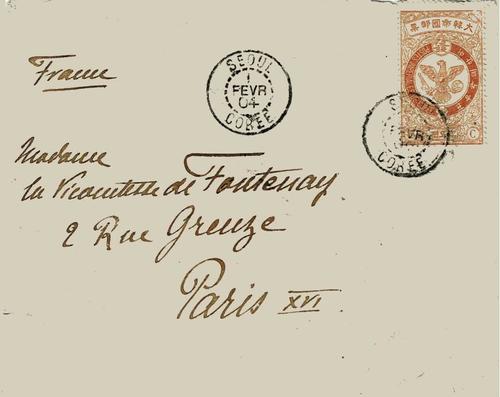 SEOUL
1
FEVR
04
COREE
大韓帝國郵票
France
SEOUL
FEVR
COREE
Madame
la Vicomtesse de Fontenay
2 Rue Greuze
Paris XVI